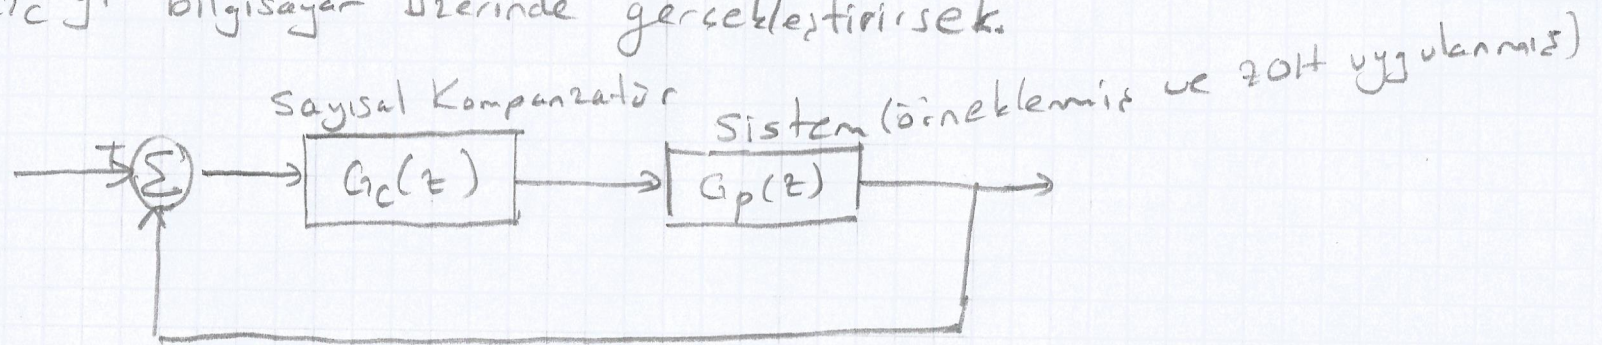 bilgisayar üzerinde gerçekleştirirsek.
Sayısal Kompanzatör
Sistem (örneklenmiş ve ZOH uygulanmış)
Σ
Gc(z)
Gp(z)